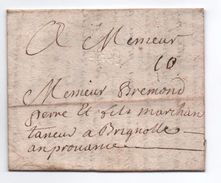 A Monsieur
10
Monsieur Bremond
pierre et fils marchan
taneur a Brignolle
an provance